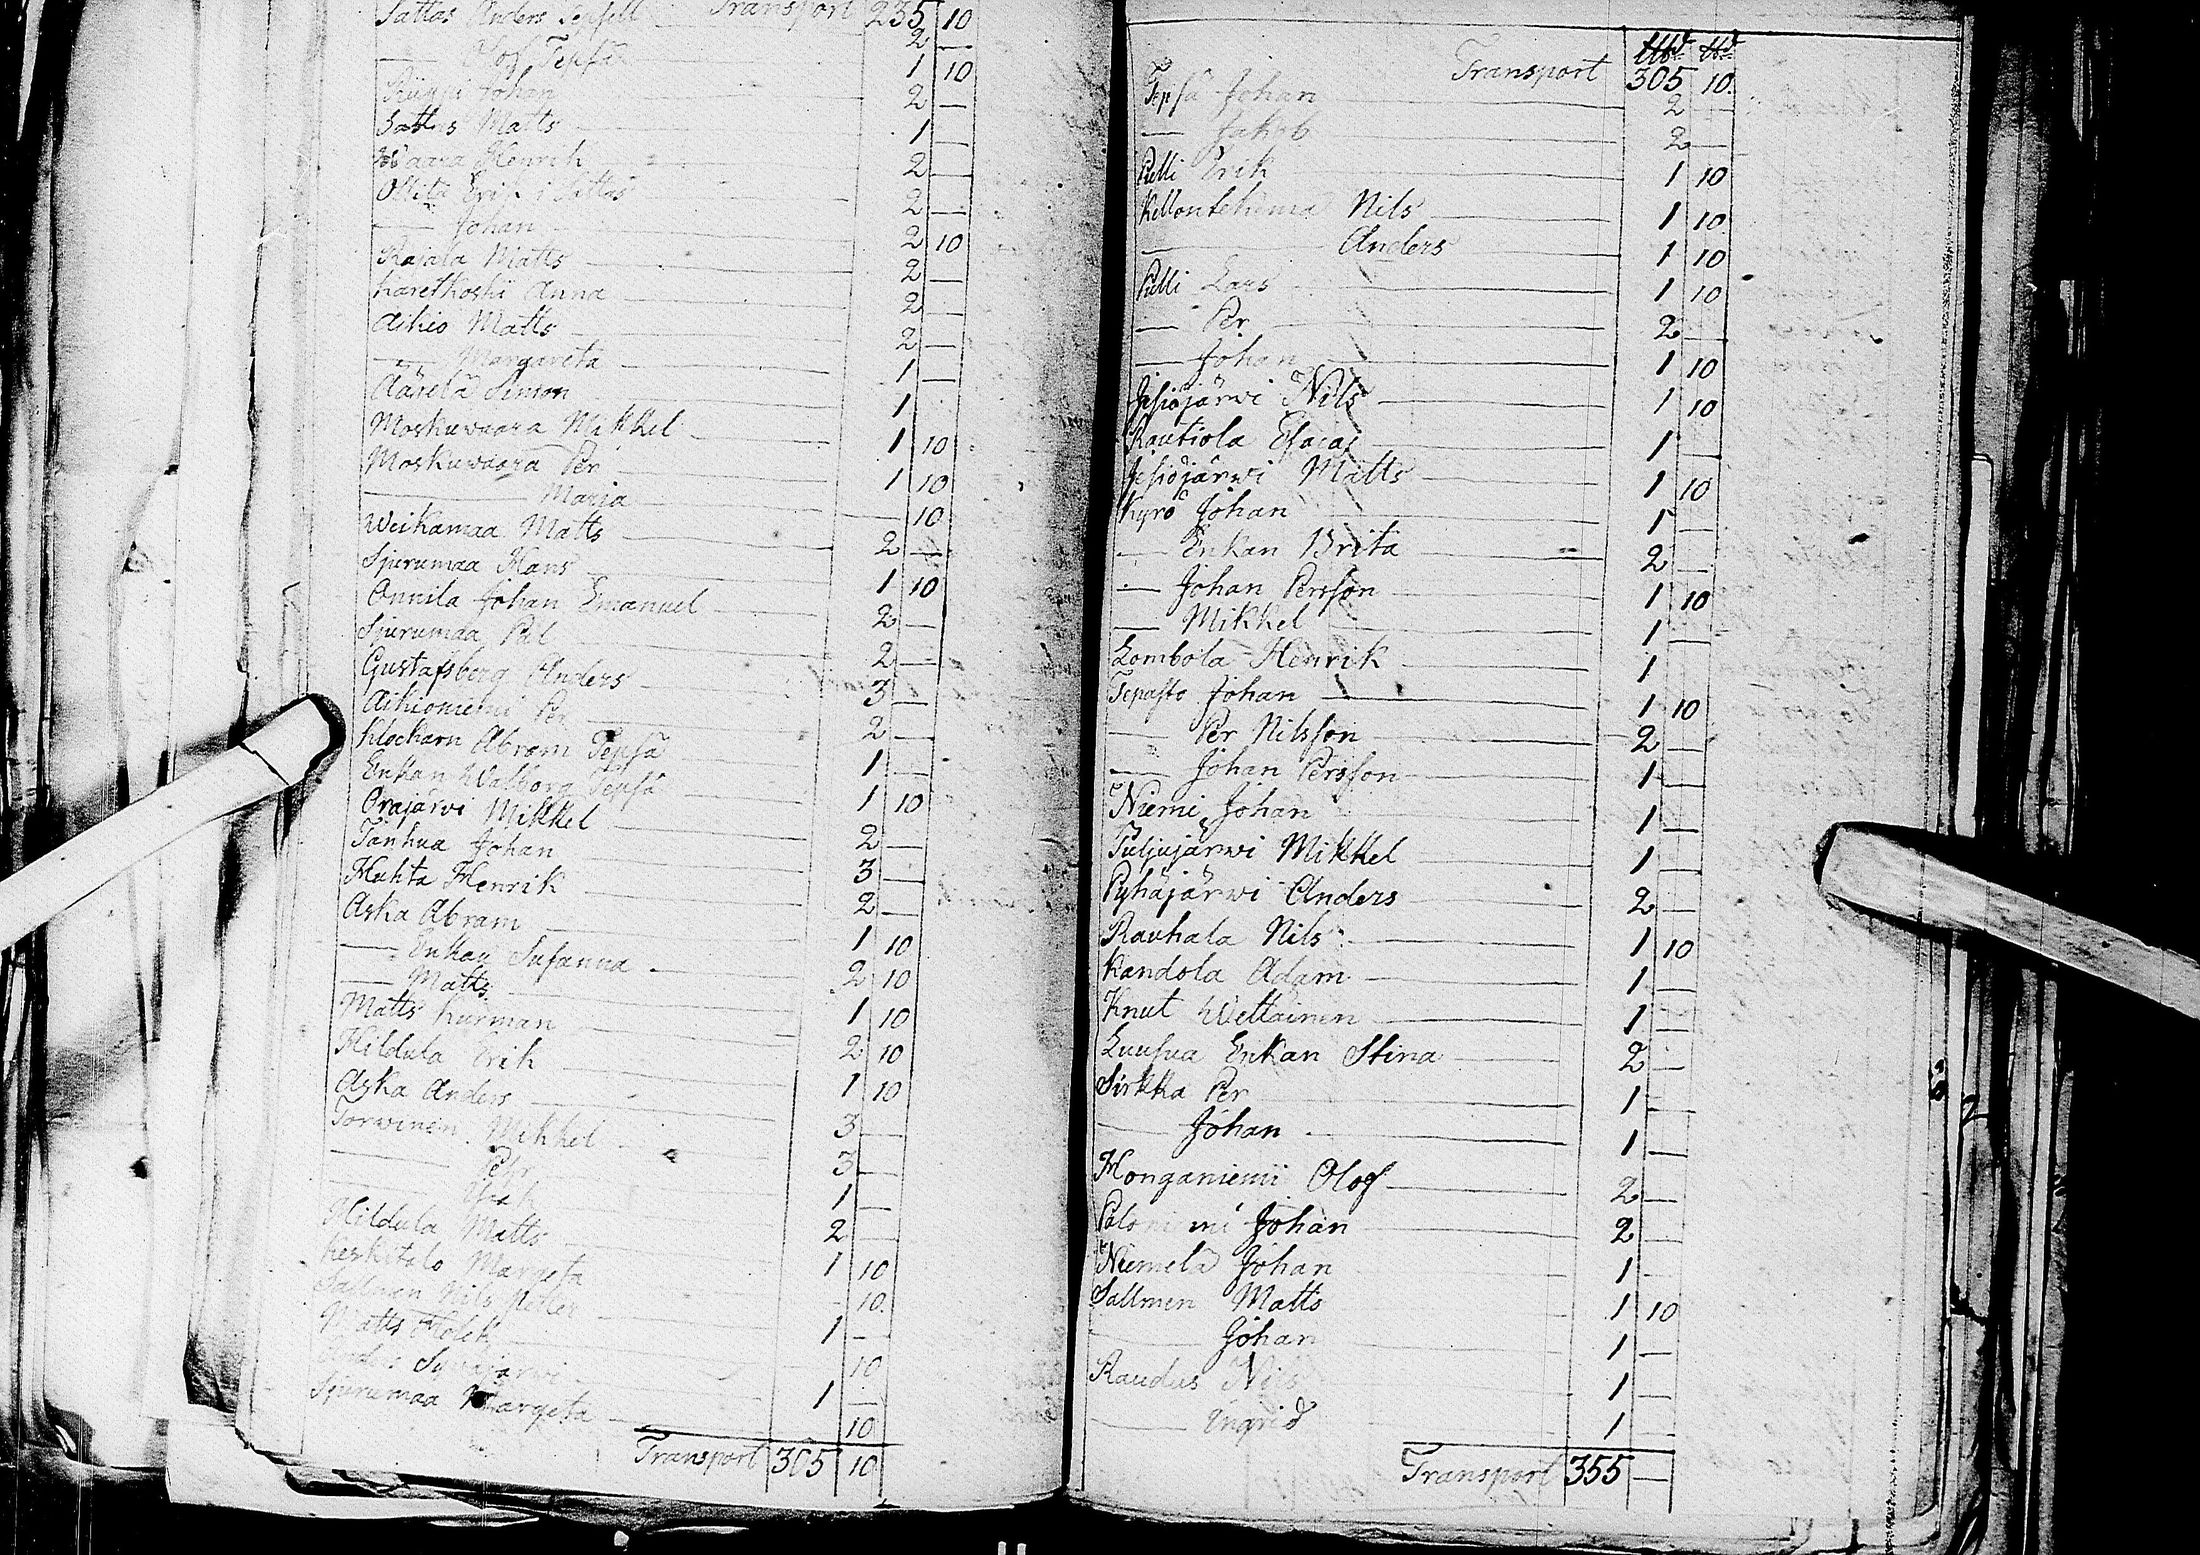 Transport 235 10
Sattas Anders Tepsell 2 —
— Olof Tepsä 1 10
Johan 2 —
Sattas Matts 1 —
Waara Henrik 2 —
Ollita Erik i Sattas 2 —
— Johan 2 10
Rajala Matts 2 —
Karetkoski Anna 2 —
Aikio Matts 2 —
— Margareta 1 —
Äärelä Simon 1
Moskuwaara Mikkel 1 10
Moskuwaara Per 1 10
— Maria — 10
Weikamaa Matts 2 —
Sjurumaa Hans 1 10
Onnila Johan Emanuel 2 —
Sjurumaa Pål 2 —
Gustafsberg Anders 3 —
Aikioniemi Per 2 —
Klockarn Abram Tepsä 1 —
Enkan Walborg Tepsä 1 10
Orajärwi Mikkel 2 —
Tanhua Johan 3 —
Huhta Henrik 2 —
Aska Abram 1 10
— Enkan Susanna 2 10
— Matts 1 10
Matts Kurman 2 10
Hildula Erik 1 10
Aska Anders 3 —
Torwinen Mikkel 3 —
— Pehr 1 —
— 2 —
Hildula Matts 1 10
Keskitalo Margeta — 10
Sallmen Nils Petter 1 —
Matts Holck 10
Sywäjärwi 1 —
Sjurumaa Margeta 10
Transport 305 10
Transport 305 10
Tepsä Johan 2 —
— Jakob 2 —
Pelli Erik 1 10
Kellontekemä Nils 1 10
— Anders 1 10
Pelli Lars 1 10
— Per 2 —
— Johan 1 10
Jesiöjärwi Nils 1 10
Rautiola Esaias 1 —
Jesiöjärwi Matts 1 10
Kyrö Johan 1 —
— Enkan Brita 2 —
— Johan Persson 1 10
— Mikkel 1 —
Lombola Henrik 1
Tepasto Johan 1 10
— Per Nilsson 2 —
— Johan Persson 1 —
Niemi Johan 1 —
Tuljujärwi Mikkel 1 —
Pyhäjärwi Anders 2 —
Rauhala Nils 1 10
Kandola Adam 1 —
Knut Wettainen 1 —
Luusua Enkan Stina 2 —
Sirkka Per 1 —
— Johan 1 —
Honganiemi Olof 2 —
Johan 2 —
Niemelä Johan 1 —
Sallmen Matts 1 10
— Johan 1 —
Raudus Nils 1 —
— Ingrid 1 —
Transport 355 —